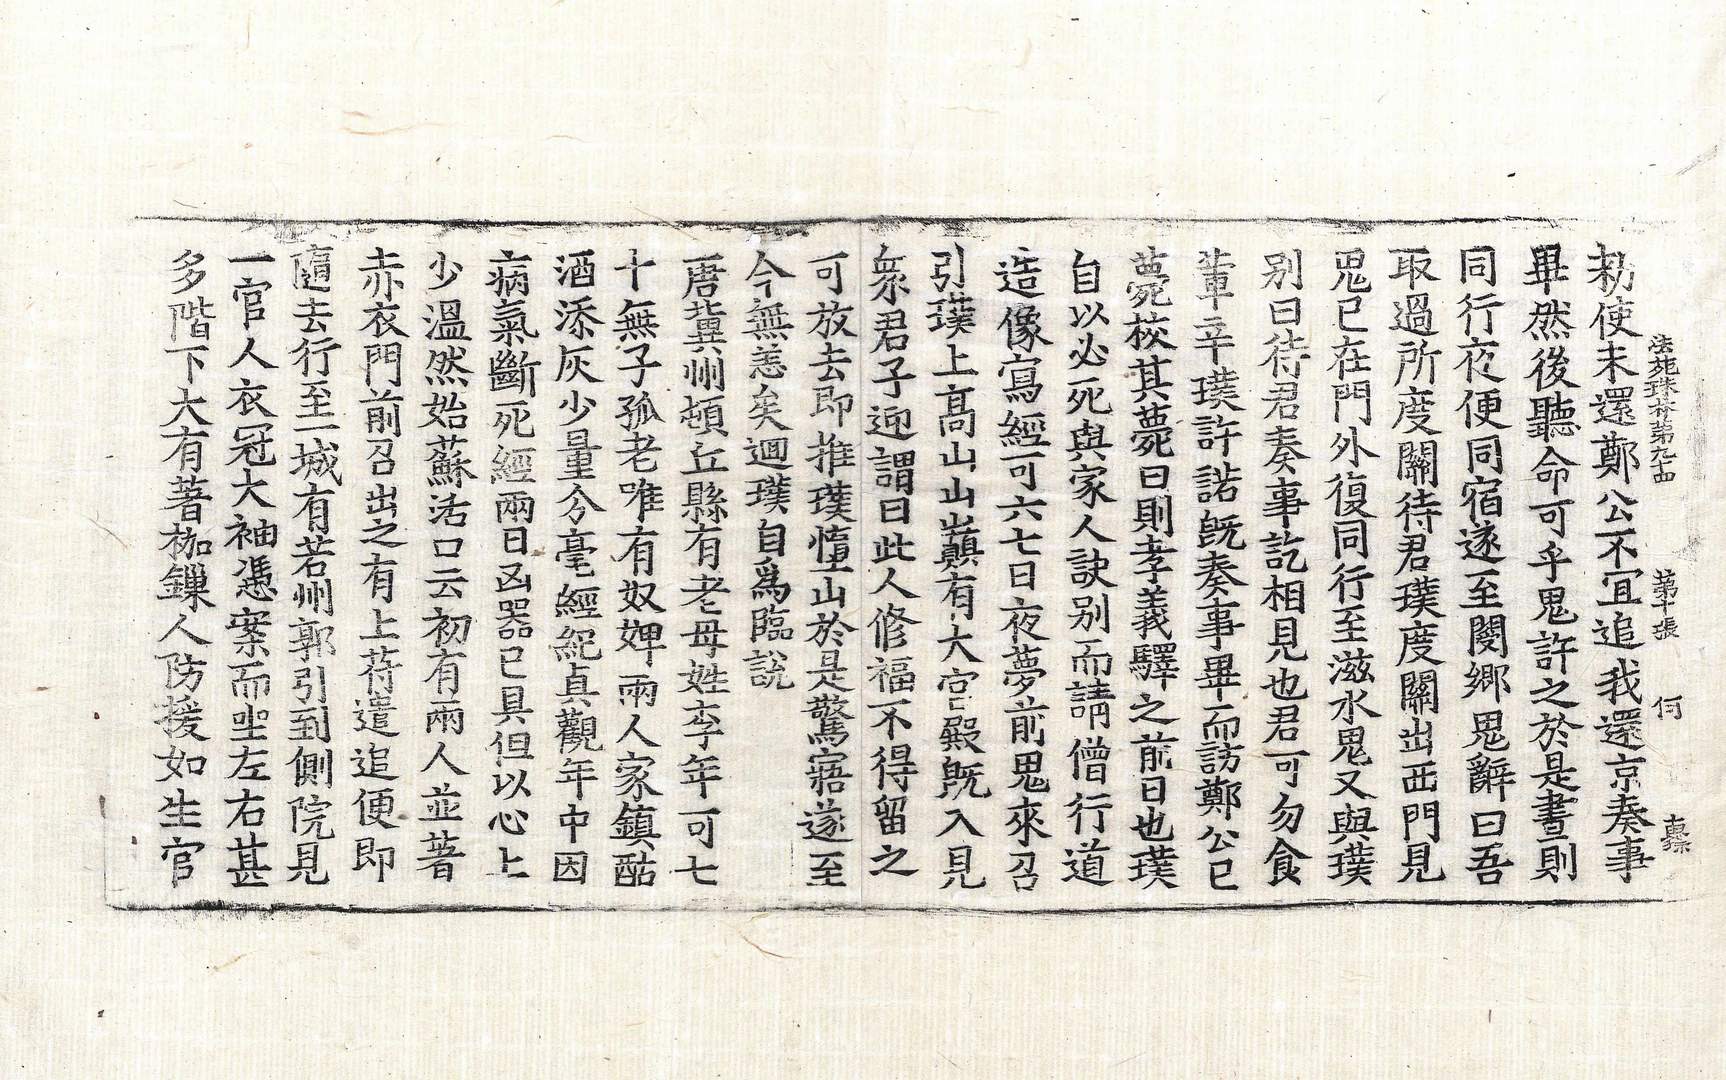 法苑珠林第九十四　第十張　何
勑使未還鄭公不冝追我還京奏事
畢然後聽命可乎鬼許之於是晝則
同行夜便同宿遂至閿鄉鬼辭曰吾
取過所度關待君璞度關出西門見
鬼已在門外復同行至滋水鬼又與璞
别曰待君奏事訖相見也君可勿食
葷辛璞許諾旣奏事畢而訪鄭公已
薨校其薨日則孝義驛之前日也璞
自以必死與家人訣别而請僧行道
造像寫經可六七日夜夢前鬼來召
引璞上高山山巔有大宮殿旣入見
衆君子迎謂曰此人修福不得留之
可放去即推璞憧山於是驚寤遂至
今無恙矣迴璞自爲臨說
一唐冀州頓丘縣有老母姓李年可七
十無子孤老唯有奴婢兩人家鎮酤
酒添灰少量分毫經紀真觀年中因
病氣斷死經兩日凶器已具但以心上
少溫然始蘇活口云初有兩人並著
赤衣門前召出之有上苻遣追便即
隨去行至一城有若州郭引到側院見
一官人衣冠大袖憑案而坐左右甚
多階下大有著枷鏁人防援如生官